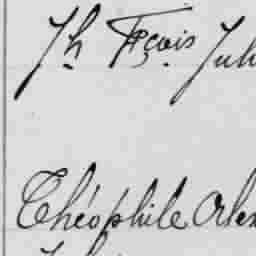 Jh Fçois Juli
Théophile Alex